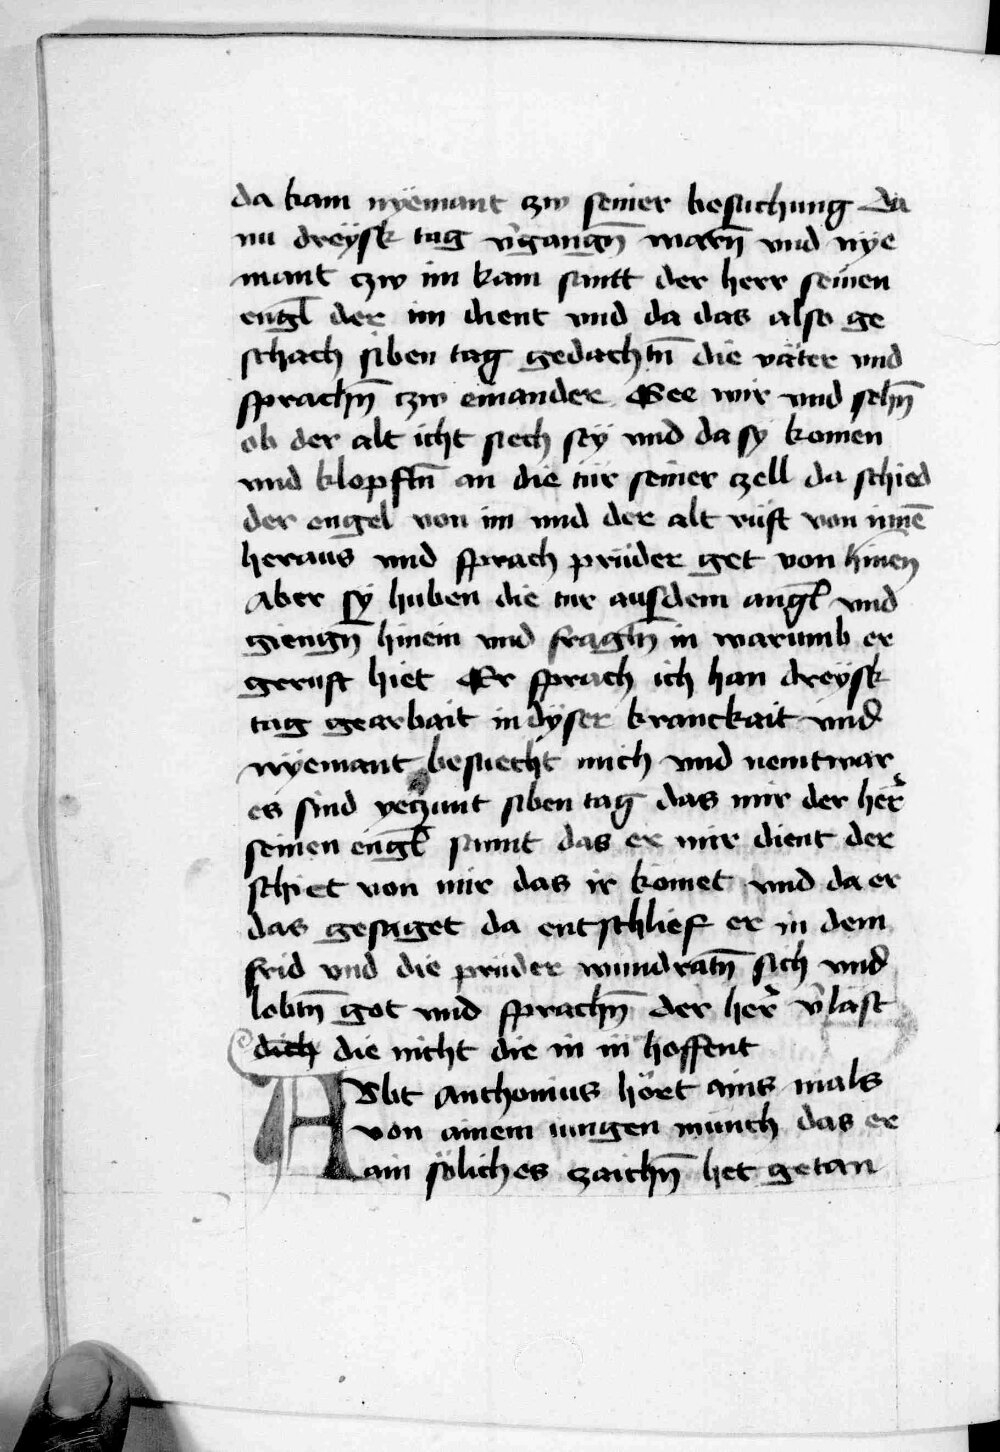 da kam nyëmant czw seiner besuchung Da
nu dreÿsk tag v̄gangn̄ warn̄ vnd nÿe
mant czw im kam santt der herr seinen
engl̄ der im dient vnd da das also ge
schach siben tag gedachtn̄ die väter vnd
sprachn̄ czw einander Gee wir vnd sehn̄
ob der alt icht siech sey vnd da sy komen
vnd klopftn̄ an die tür seiner czell da schied
der engel von im vnd der alt rüft von iñē
heraus vnd sprach prüder get von hinen
Aber sy huben die tür aus dem angl̄ vnd
giengn̄ hinein vnd fragtn̄ in warumb er
gerüft hiet Er sprach ich han dreysk
tag gearbait in dyser kranckait vnd
nyemant besuecht mich vnd nemt war
es sind yeczunt siben tag das mir der her̄
seinen engl̄ sannt das er mir dient der
schiet von mir das ir komet vnd da er
das gesaget da entschlief er in dem
frid vnd die prüder wundratn̄ sich vnd
lobtn̄ got vnd sprachn̄ der her̄ v̄läst
dich die nicht die in in hoffent
Abt Anthonius hört ains mals
von ainem iungen münch das er
ain söliches zaichn̄ het getan